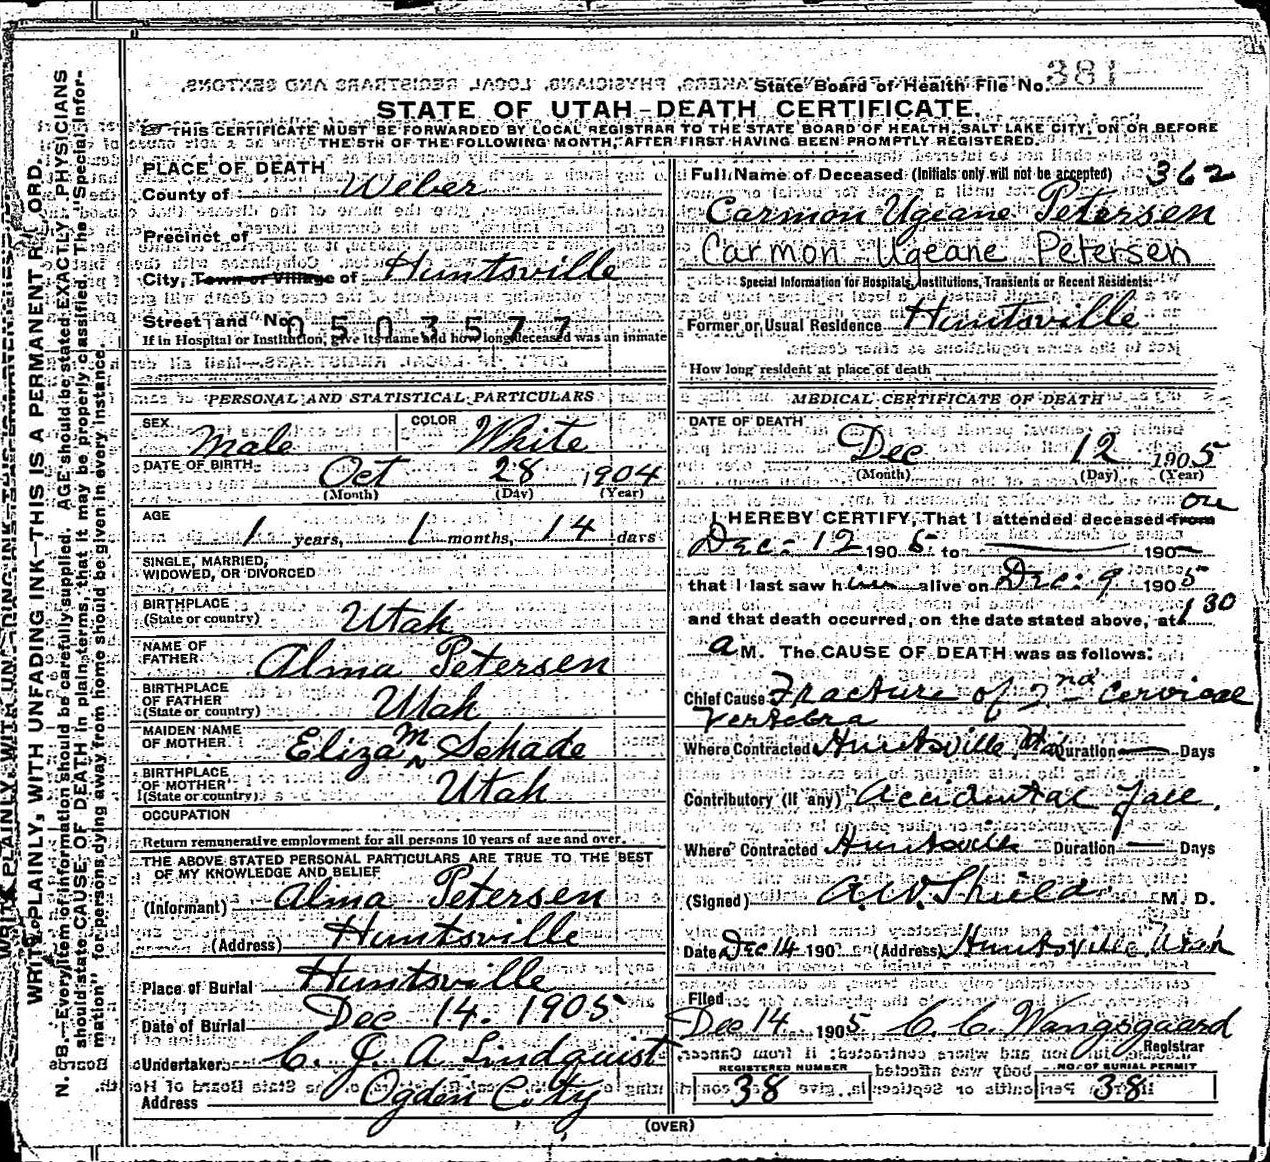 State Board of Health File No. 381
STATE OF UTAH—DEATH CERTIFICATE.
THIS CERTIFICATE MUST BE FORWARDED BY LOCAL REGISTRAR TO THE STATE BOARD OF HEALTH, SALT LAKE CITY, ON OR BEFORE
THE 5TH OF THE FOLLOWING MONTH, AFTER FIRST HAVING BEEN PROMPTLY REGISTERED.
WRITE PLAINLY, WITH UNFADING INK—THIS IS A PERMANENT RECORD.
N. B.—Every item of information should be carefully supplied. AGE should be stated EXACTLY. PHYSICIANS
should state CAUSE OF DEATH in plain terms, that it may be properly classified. The "Special Infor-
mation" for persons dying away from home should be given in every instance.
PLACE OF DEATH
County of Weber
Precinct of
City, Town or Village of Huntsville
Street and No.
0503577
If in Hospital or Institution, give its name and how long deceased was an inmate
PERSONAL AND STATISTICAL PARTICULARS
SEX Male COLOR White
DATE OF BIRTH Oct 28 1904
(Month) (Day) (Year)
AGE
1 years, 1 months, 14 days
SINGLE, MARRIED,
WIDOWED, OR DIVORCED
BIRTHPLACE
(State or country) Utah
NAME OF
FATHER Alma Petersen
BIRTHPLACE
OF FATHER
(State or country) Utah
MAIDEN NAME
OF MOTHER Eliza M Schade
BIRTHPLACE
OF MOTHER
(State or country) Utah
OCCUPATION
Return remunerative employment for all persons 10 years of age and over.
THE ABOVE STATED PERSONAL PARTICULARS ARE TRUE TO THE BEST
OF MY KNOWLEDGE AND BELIEF
(Informant) Alma Petersen
(Address) Huntsville
Place of Burial Huntsville
Date of Burial Dec 14. 1905
Undertaker C. J. A. Lindquist
Address Ogden City
Full Name of Deceased (Initials only will not be accepted) 362
Carmon Ugeane Petersen
Carmon Ugeane Petersen
Special Information for Hospitals, Institutions, Transients or Recent Residents:
Former or Usual Residence Huntsville
How long resident at place of death
MEDICAL CERTIFICATE OF DEATH
DATE OF DEATH
Dec 12 1905
(Month) (Day) (Year)
I HEREBY CERTIFY, That I attended deceased from on
Dec. 12 1905 to 190
that I last saw him alive on Dec. 9 1905
and that death occurred, on the date stated above, at 1 30
a M. The CAUSE OF DEATH was as follows:
Chief Cause Fracture of 2nd cervical
vertebra
Where Contracted Huntsville, Utah Duration — Days
Contributory (if any) Accidental Fall.
Where Contracted Huntsville Duration — Days
(Signed) A. W. Shields M. D.
Date Dec 14 190 (Address) Huntsville, Utah
Filed
Dec 14 1905 C. C. Wangsgaard
Registrar
REGISTERED NUMBER
38
NO. OF BURIAL PERMIT
38
(OVER)